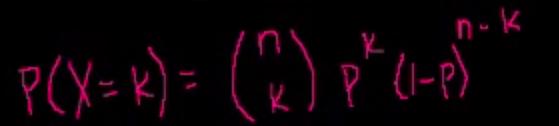 P(X=k) = (n k) p^k (1-p)^{n-k}